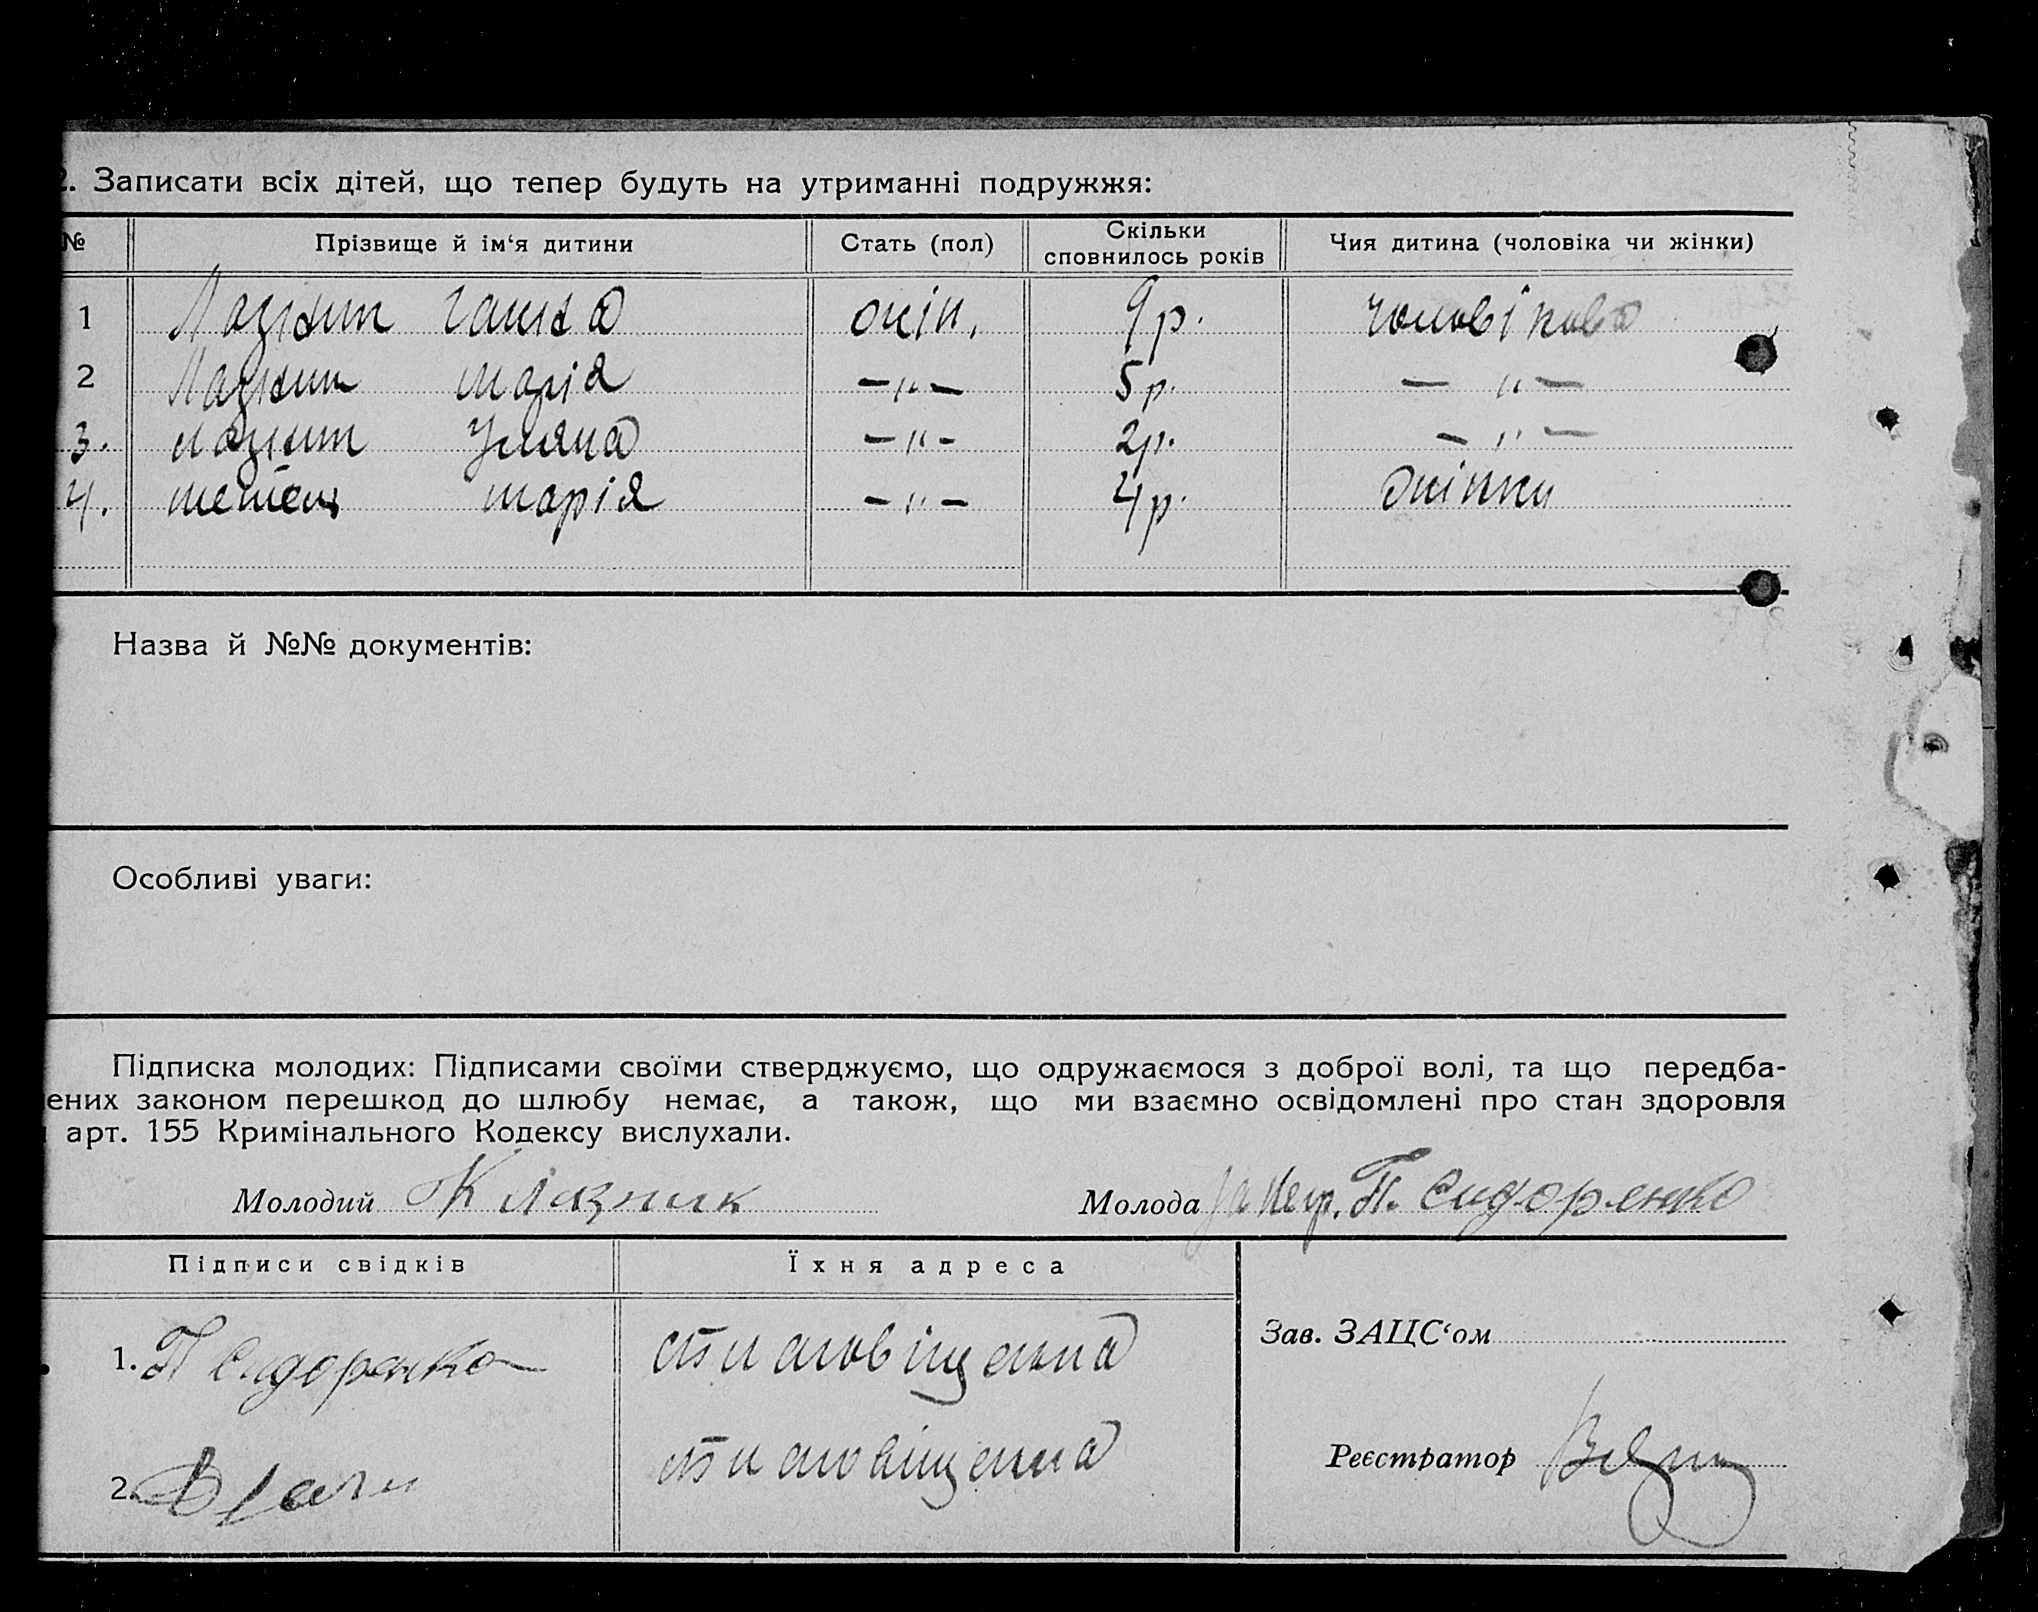 2. Записати всіх дітей, що тепер будуть на утриманні подружжя:
№ Прізвище й ім‘я дитини Стать (пол) Скільки сповнилось років Чия дитина (чоловіка чи жінки)
1 Лазник Ганна жін. 9 р. чоловікова
2 Лазник Марія — " — 5 р. — " —
3. Лазник Уляна — " — 2 р. — " —
4. Марія — " — 4 р. жінки
Назва й №№ документів:
Особливі уваги:
Підписка молодих: Підписами своїми стверджуємо, що одружаємося з доброї волі, та що передба-
ених законом перешкод до шлюбу немає, а також, що ми взаємно освідомлені про стан здоровля
арт. 155 Кримінального Кодексу вислухали.
Молодий К Лазник Молода за негр. П. Сидоренко
Підписи свідків Їхня адреса
Зав. ЗАЦС‘ом
1. П Сидоренко
Реєстратор
2.